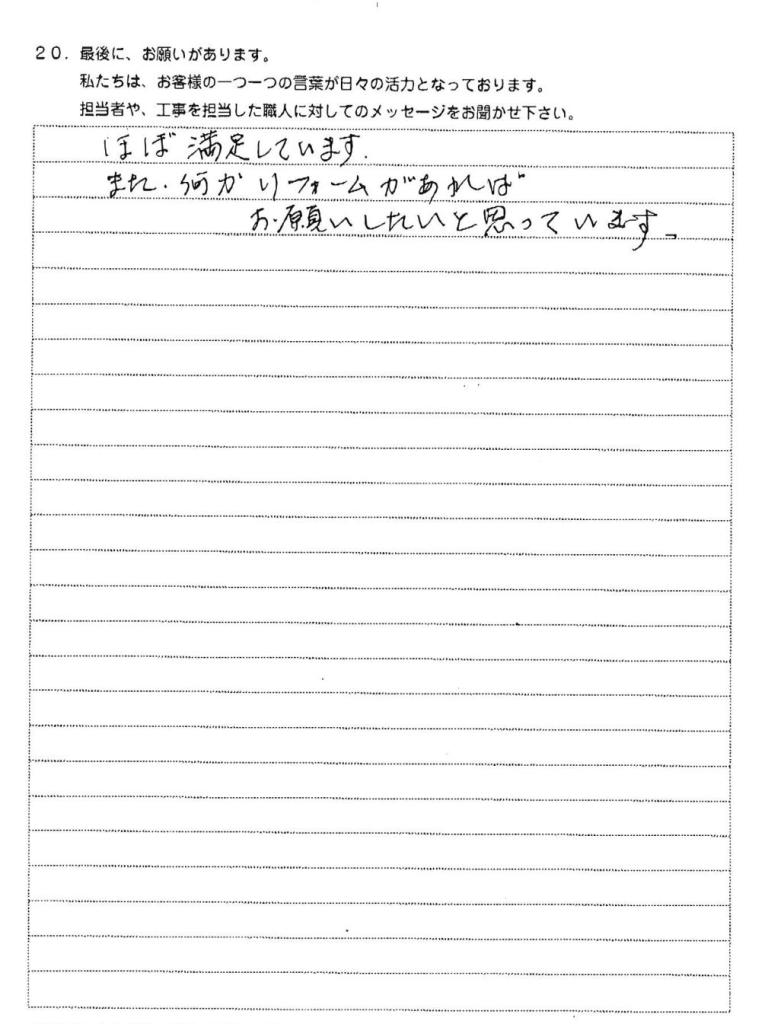 20. 最後に、お願いがあります。
私たちは、お客様の一つ一つの言葉が日々の活力となっております。
担当者や、工事を担当した職人に対してのメッセージをお聞かせ下さい。
ほぼ満足しています.
また.何かリフォームがあれば
お願いしたいと思っています。